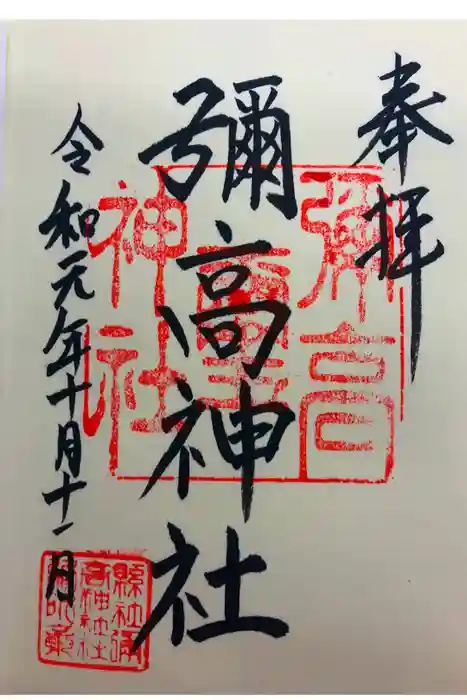 奉拝
彌高神社
令和元年十月十一日
彌高
神社
縣社彌
高神社社
務所章